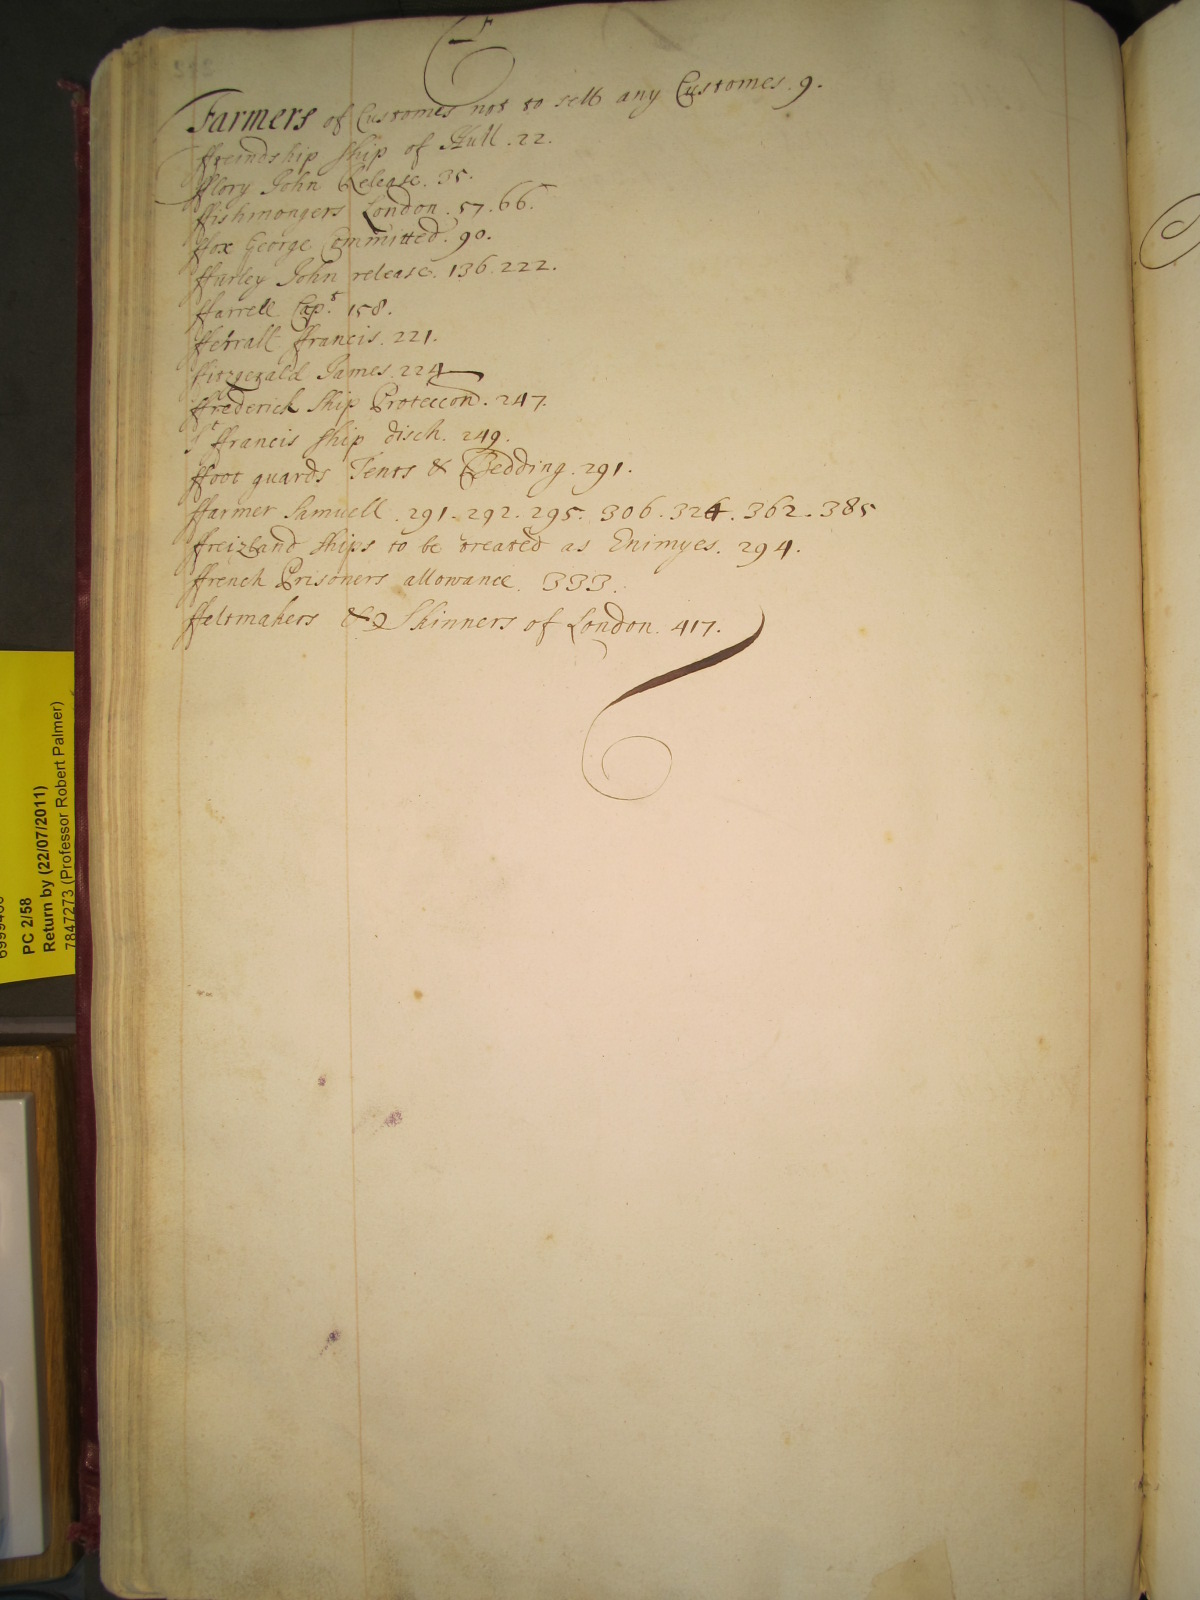 F
Farmers of Customes not to sell any Customes. 9.
ffreindship ship of Hull. 22.
fflory John Release. 35.
ffishmongers London. 57. 66.
ffox George Committed. 90.
ffarley John release. 136. 222.
ffarrell Capt. 158.
fferrall ffrancis. 221.
ffitzgerald James. 224
ffrederick ship Proteccon. 247.
St ffrancis ship disch. 249.
ffoot guards Tents & Bedding. 291.
ffarmer Samuell. 291. 292. 295. 306. 324. 362. 385
ffreizland ships to be treated as Enimyes. 294.
ffrench Prisoners allowance. 333.
ffeltmakers & Skinners of London. 417.
PC 2/58
Return by (22/07/2011)
7847273 (Professor Robert Palmer)